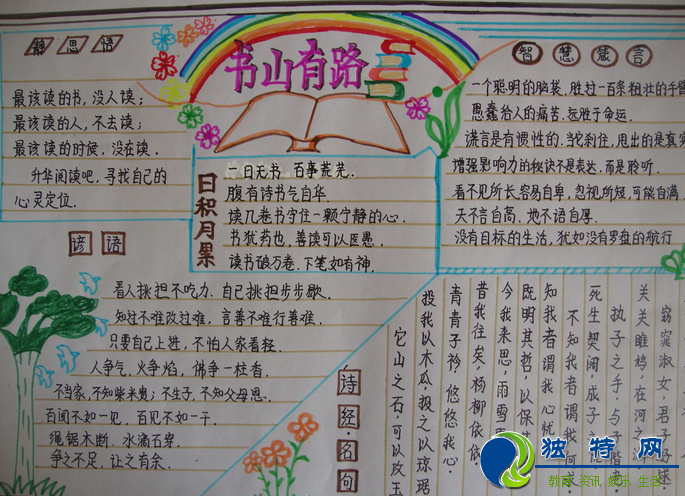 静思语
最该读的书，没人读；
最该读的人，不去读；
最该读的时候，没在读．
升华阅读吧，寻找自己的
心灵定位．
书山有路
日积月累
一日无书 百事荒芜．
腹有诗书气自华．
读几卷书守住一颗宁静的心．
书犹药也，善读可以医愚．
读书破万卷．下笔如有神．
智慧箴言
一个聪明的脑袋，胜过一百条粗壮的手臂
愚蠢给人的痛苦．远胜于命运．
谎言是有惯性的．当它刹住，甩出的是真实
增强影响力的秘诀不是表达，而是聆听．
看不见所长，容易自卑，忽视所短，可能自满．
天不言自高．地不语自厚．
没有目标的生活，犹如没有罗盘的航行
谚语
看人挑担不吃力，自己挑担步步歇．
知过不难改过难，言善不难行善难．
只要自己上进，不怕人家看轻．
人争气，火争焰，佛争一柱香．
不当家，不知柴米贵；不生子，不知父母恩．
百闻不如一见，百见不如一干．
绳锯木断，水滴石穿．
争之不足，让之有余．
诗经·名句
窈窕淑女，君子
关关雎鸠，在河之
执子之手，与子偕老
死生契阔，成子之
不知我者谓我何求
知我者谓我心忧
既明其哲，以保其
今我来思，雨雪
昔我往矣，杨柳依依
青青子衿，悠悠我心．
投我以木瓜．投之以琼琚
它山之石，可以攻玉
独特网
教育 资讯 娱乐 生活